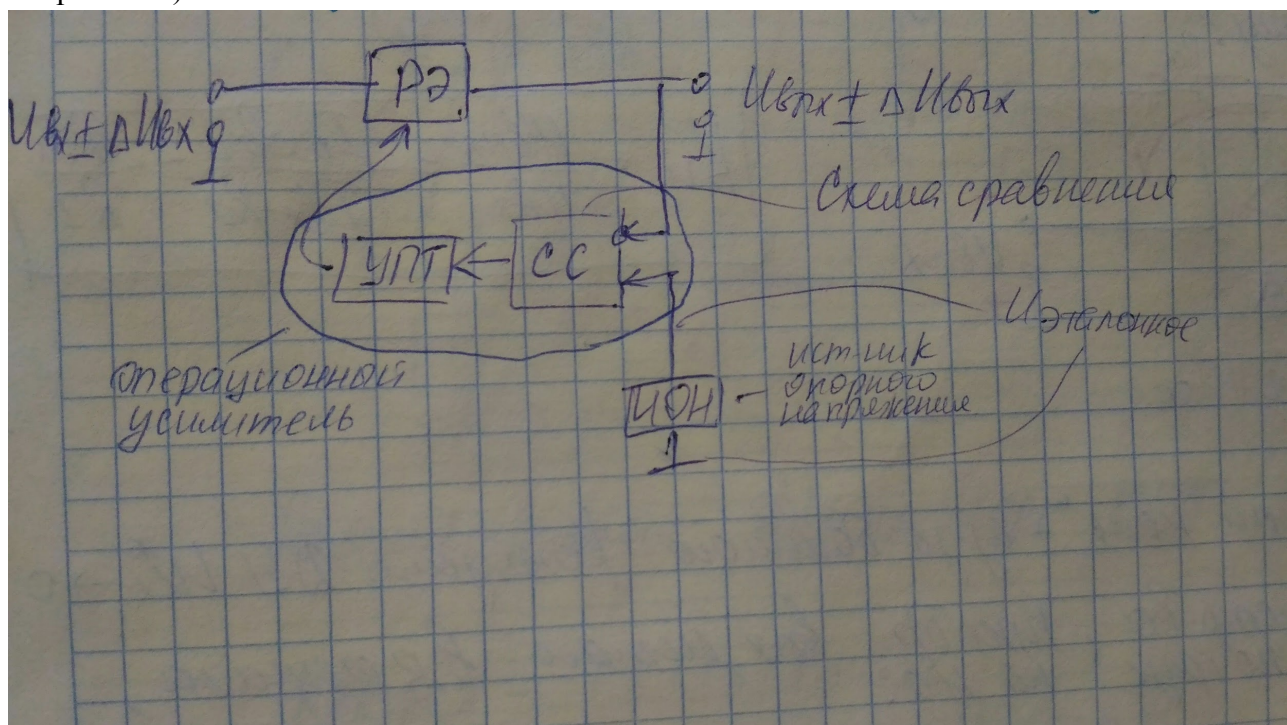 РЭ
Uвх ± ΔUвх
Uвых ± ΔUвых
Схема сравнения
УПТ
СС
Uэталонное
операционный
усилитель
ИОН
ист-ник
опорного
напряжения